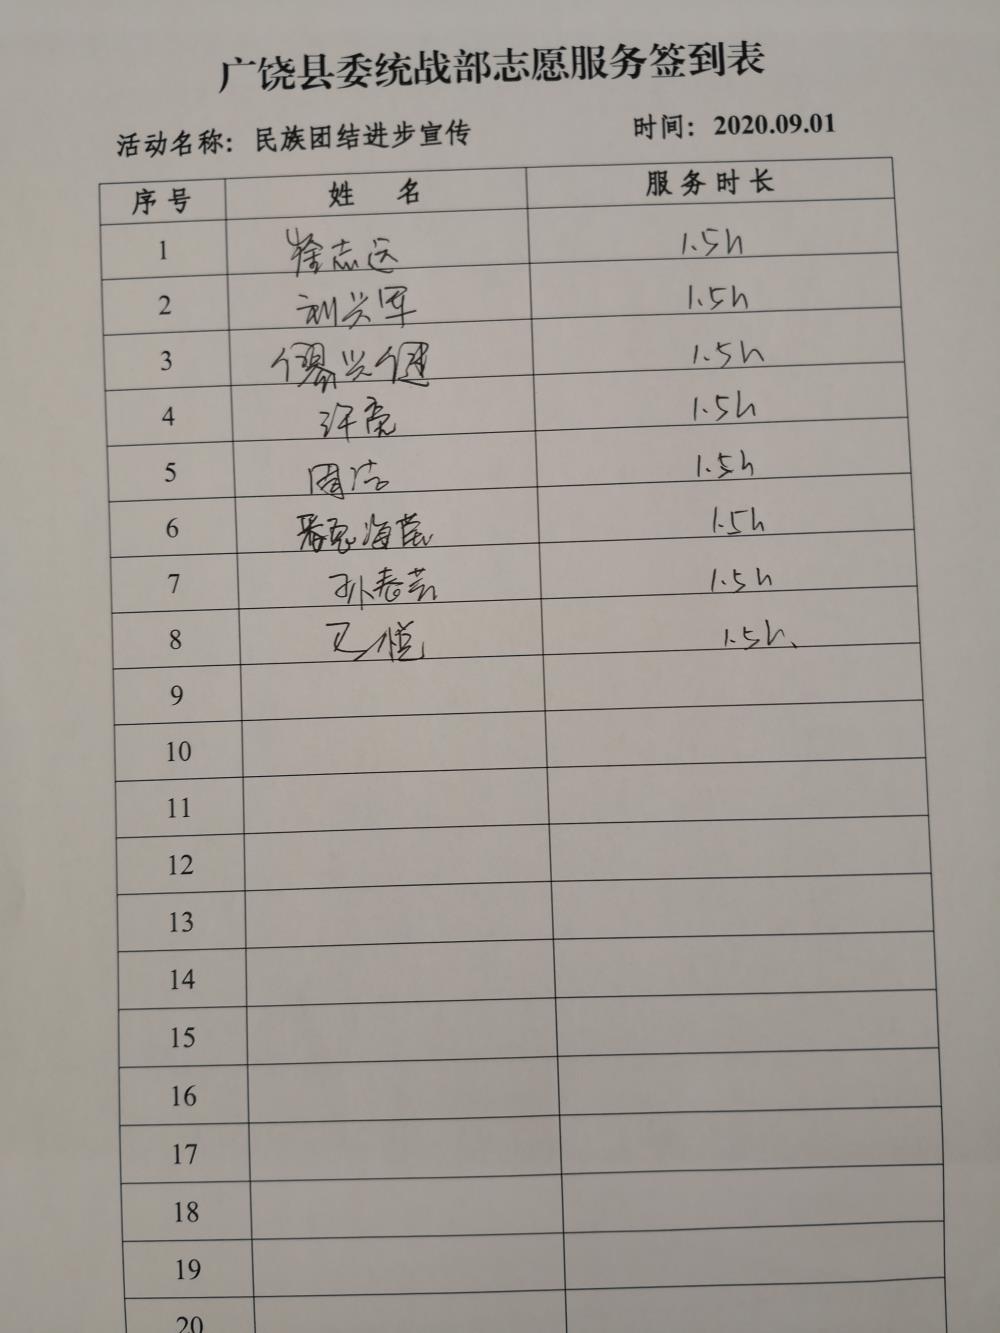 广饶县委统战部志愿服务签到表
活动名称：民族团结进步宣传 时间：2020.09.01
序号 姓 名 服务时长
1 徐志远 1.5h
2 刘兴军 1.5h
3 缪兴健 1.5h
4 许亮 1.5h
5 周洁 1.5h
6 海莲 1.5h
7 孙春芸 1.5h
8 王悦 1.5h
9
10
11
12
13
14
15
16
17
18
19
20